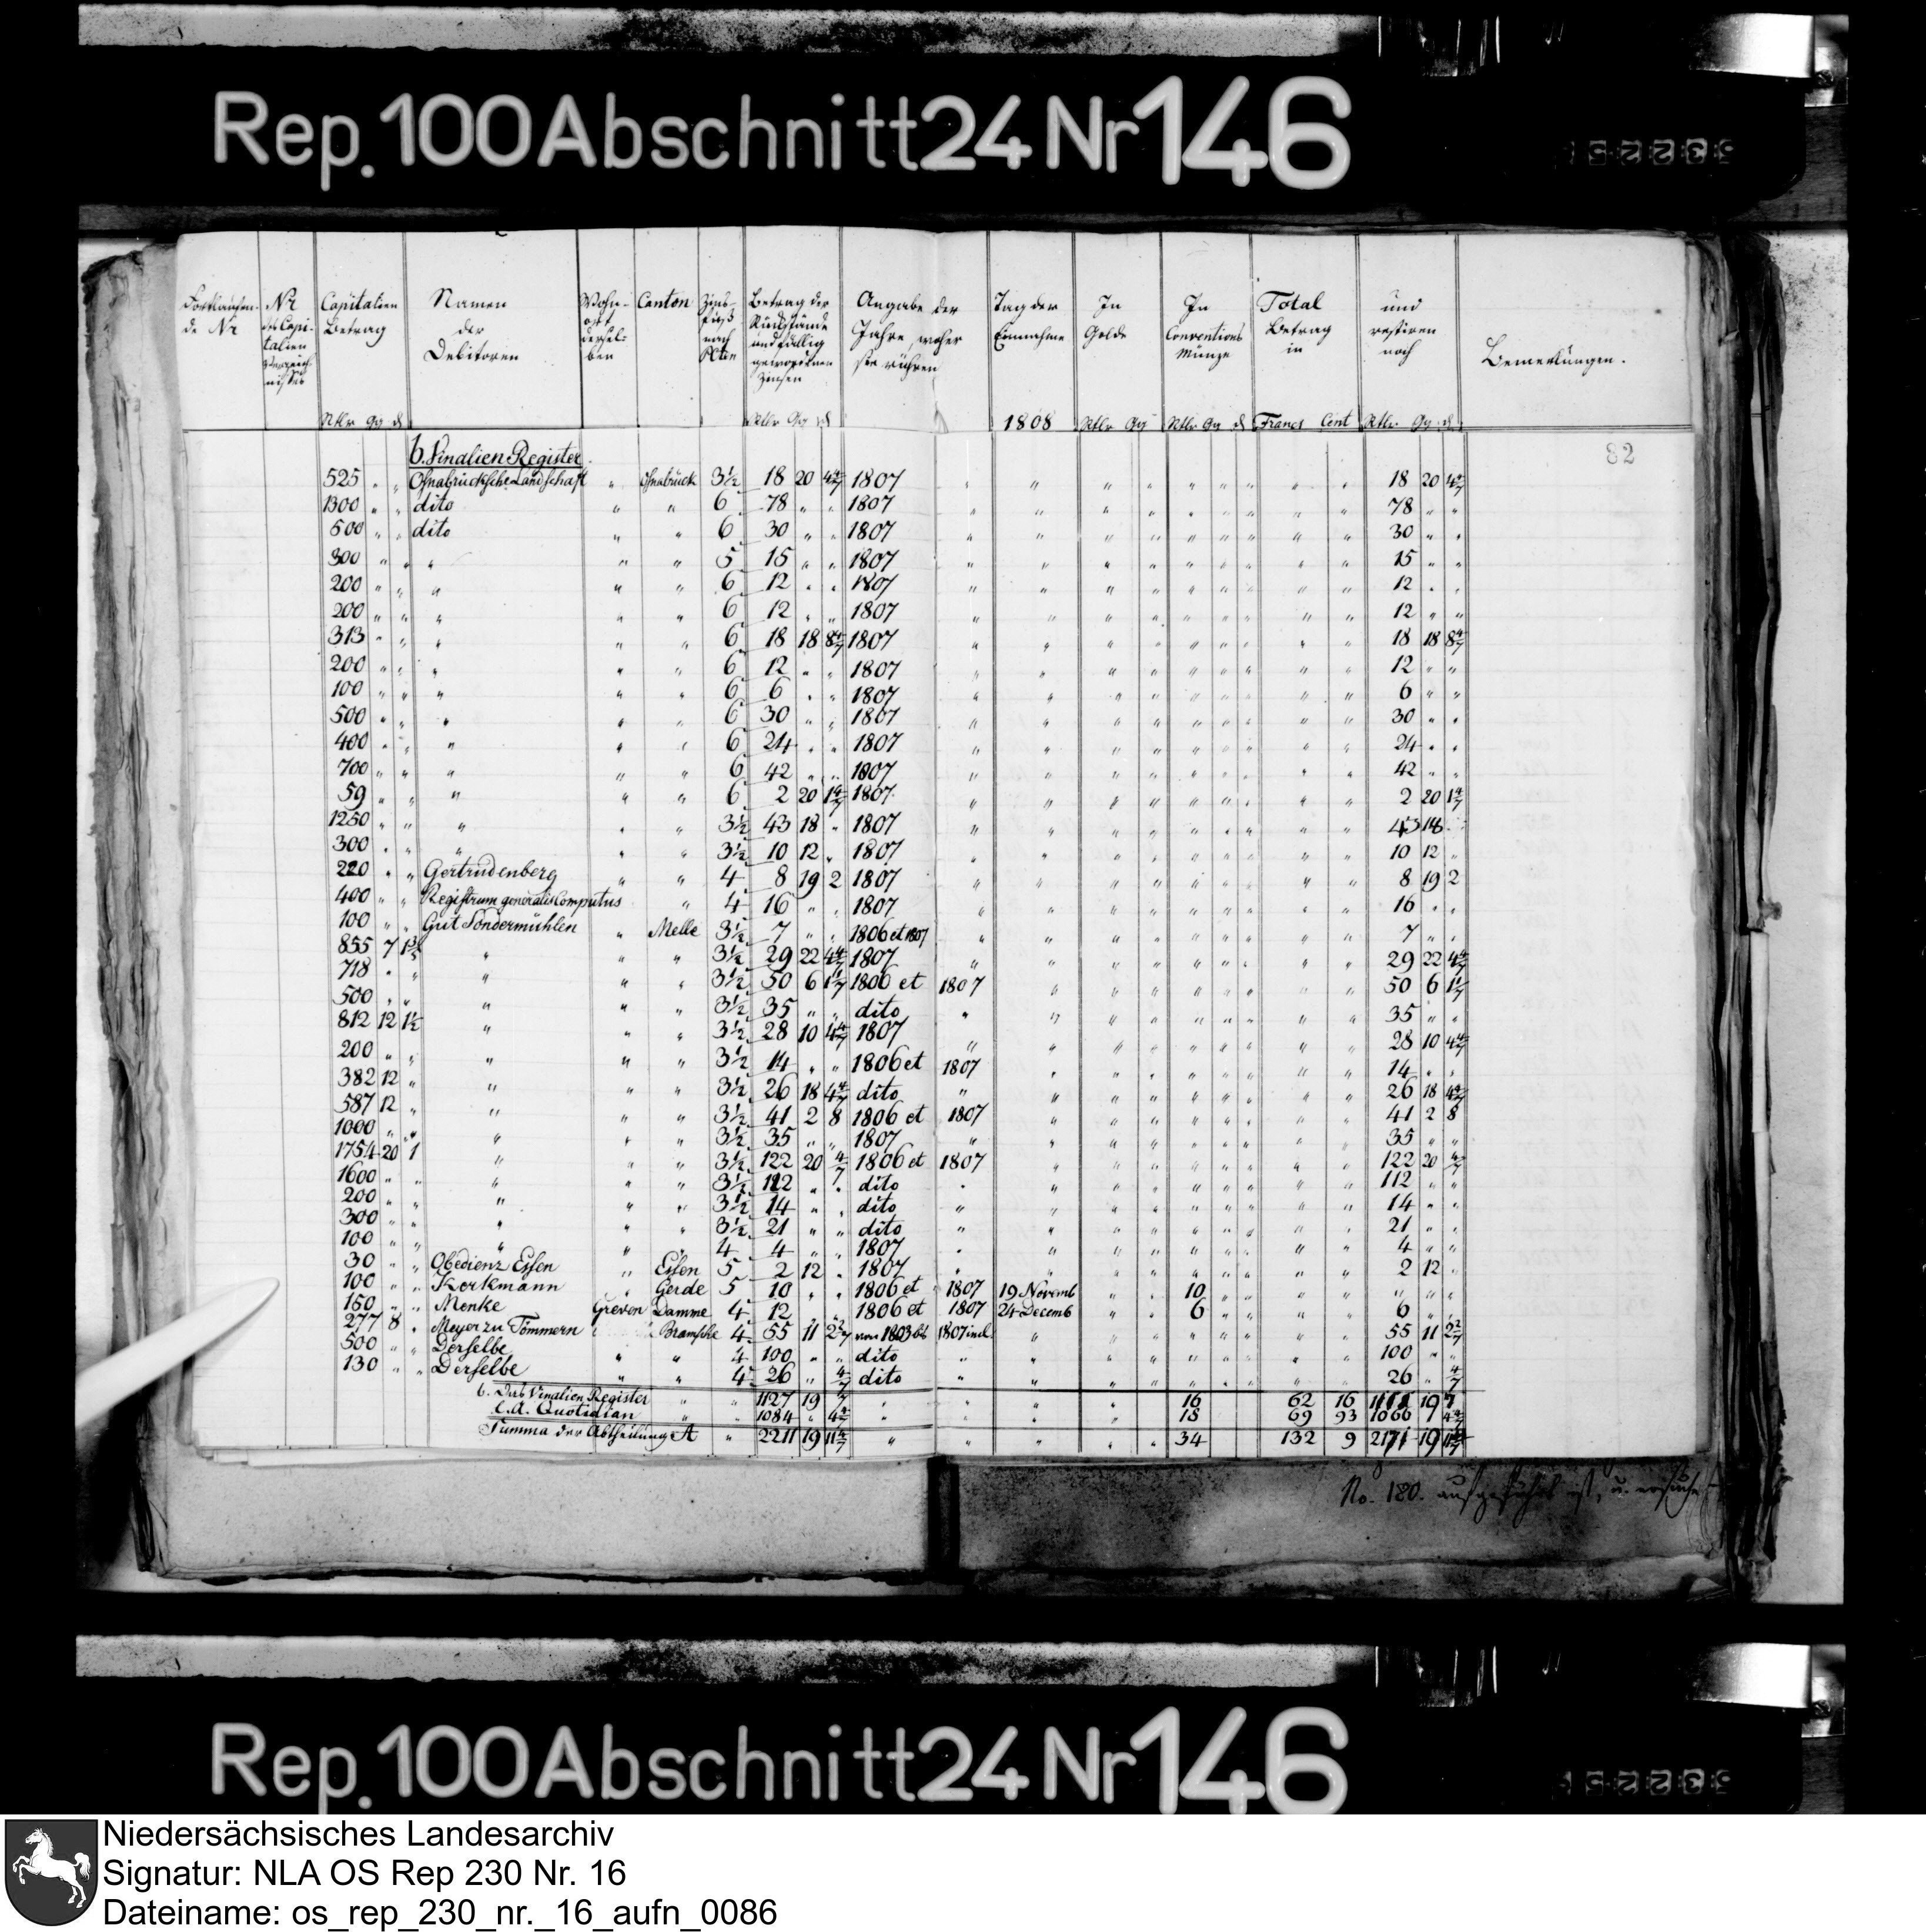 Rep. 100 Abschnitt 24 Nr 146
Fortlaufende Nr | Nr des Capitalien Verzeichnisses | Capitalien Betrag | Namen der Debitoren | Wohnort derselben | Canton | Zinsfuß nach | Betrag der Rückstände und fällig gewordenen Zinsen | Angabe der Jahre, woher sie rühren | Tag der Einnahme | In Golde | In Conventions Münze | Total Betrag in | und restiren noch | Bemerkungen.
Rtlr gg d | Rtlr Gg d | 1808 | Rtlr Gg | Rtlr Gg d | Francs Cent | Rtlr Gg d
82
b. Vinalien Register
525 " " Osnabrücksche Landschaft " Osnabrück 3½ 18 20 4 4/7 1807 18 20 4 4/7
1300 " " dito " " 6 78 " " 1807 78 " "
500 " " dito " " 6 30 " " 1807 30 " "
300 " " " " " 5 15 " " 1807 15 " "
200 " " " " " 6 12 " " 1807 12 " "
200 " " " " " 6 12 " " 1807 12 " "
313 " " " " " 6 18 18 8 4/7 1807 18 18 8 4/7
200 " " " " " 6 12 " " 1807 12 " "
100 " " " " " 6 6 " " 1807 6 " "
500 " " " " " 6 30 " " 1807 30 " "
400 " " " " " 6 24 " " 1807 24 " "
700 " " " " " 6 42 " " 1807 42 " "
59 " " " " " 6 2 20 1 4/7 1807 2 20 1 4/7
1250 " " " " " 3½ 43 18 " 1807 43 18 "
300 " " " " " 3½ 10 12 " 1807 10 12 "
220 " " Gertrudenberg " " 4 8 19 2 1807 8 19 2
400 " " Registrum generalis Computus " 4 16 " " 1807 16 " "
100 " " Gut Sondermühlen " Melle 3½ 7 " " 1806 et 1807 7 " "
855 7 " " " 3½ 29 22 4 4/7 1807 29 22 4 4/7
718 " " " " " 3½ 50 6 1 1/7 1806 et 1807 50 6 1 1/7
500 " " " " " 3½ 35 " " dito 35 " "
812 12 1½ " " " 3½ 28 10 4 4/7 1807 28 10 4 4/7
200 " " " " " 3½ 14 " " 1806 et 1807 14 " "
382 12 " " " " 3½ 26 18 4 4/7 dito 26 18 4 4/7
587 12 " " " " 3½ 41 2 8 1806 et 1807 41 2 8
1000 " " " " " 3½ 35 " " 1807 35 " "
1754 20 1 " " " 3½ 122 20 4/7 1806 et 1807 122 20 4/7
1600 " " " " " 3½ 112 " " dito 112 " "
200 " " " " " 3½ 14 " " dito 14 " "
300 " " " " " 3½ 21 " " dito 21 " "
100 " " " " " 4 4 " " 1807 4 " "
30 " " Obedienz Essen " Essen 5 2 12 " 1807 2 12 "
100 " " Korkmann " Gerde 5 10 " " 1806 et 1807 19 Novemb 10 " " "
150 " " Menke Greven Damme 4 12 " " 1806 et 1807 24 Decemb 6 6 " "
277 8 " Meyer zu Tömmern " Bramsche 4 55 11 2 2/7 von 1803 bis 1807 incl. 55 11 2 2/7
500 " " Derselbe " " 4 100 " " dito 100 " "
130 " " Derselbe " " 4 26 " 4/7 dito 26 " 4/7
b. Das Vinalien Register " " 1127 19 7 16 62 16 1111 19 7
C. A. Quotidian " " 1084 " 4 4/7 18 69 93 1066 " 4 4/7
Summa der Abtheilung A " 2211 19 11 4/7 34 132 9 2171 19 11 4/7
No. 180. aufgeführt ist, u. ersuche
Rep. 100 Abschnitt 24 Nr 146
Niedersächsisches Landesarchiv
Signatur: NLA OS Rep 230 Nr. 16
Dateiname: os_rep_230_nr._16_aufn_0086